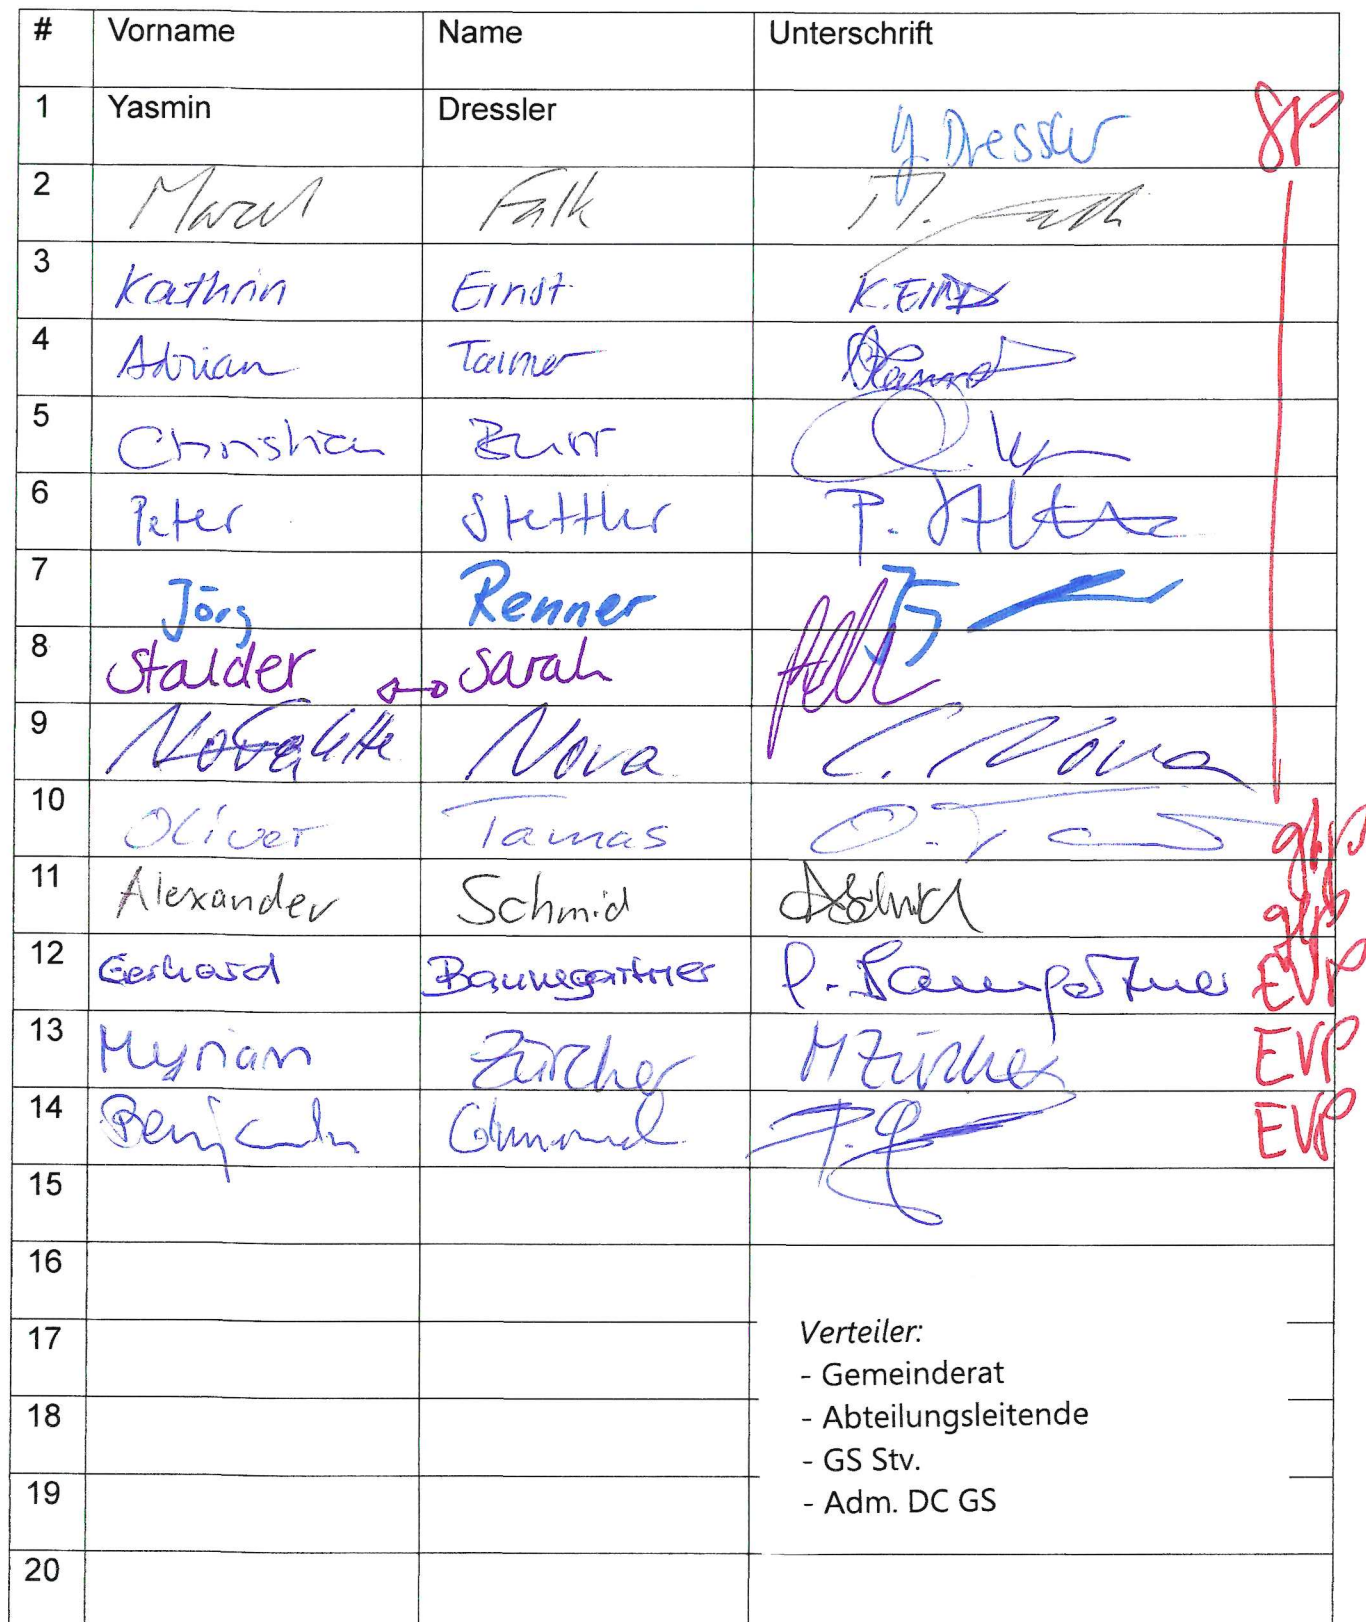 # Vorname Name Unterschrift
1 Yasmin Dressler Y. Dressler SP
2 Marcel Falk M. Falk
3 Kathrin Ernst K. Ernst
4 Adrian Tanner
5 Christian Burr
6 Peter Stettler P. Stettler
7 Jörg Renner
8 Stalder ↔ Sarah
9 Nova
10 Oliver Tamas O. T glp
11 Alexander Schmid ASchmid glp
12 Gerhard Baumgartner Baumgartner EVP
13 Myriam Zürcher M Zürcher EVP
14 Benjamin EVP
15
16
17
18
19
20
Verteiler:
- Gemeinderat
- Abteilungsleitende
- GS Stv.
- Adm. DC GS